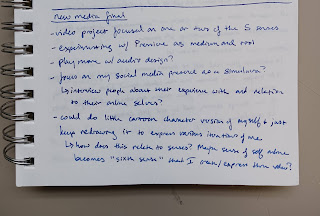 new media final
- video project focused on one or two of the 5 senses
- experimenting w/ Premiere as medium and tool
- play more w/ audio design?
- focus on my social media presence as a simulacra?
↳ interview people about their experience with and relation
to their online selves?
- could do little cartoon character version of myself & just
keep redrawing it to express various iterations of me
↳ how does this relate to senses? Maybe sense of self online
becomes "sixth sense" that I create/express thru video?